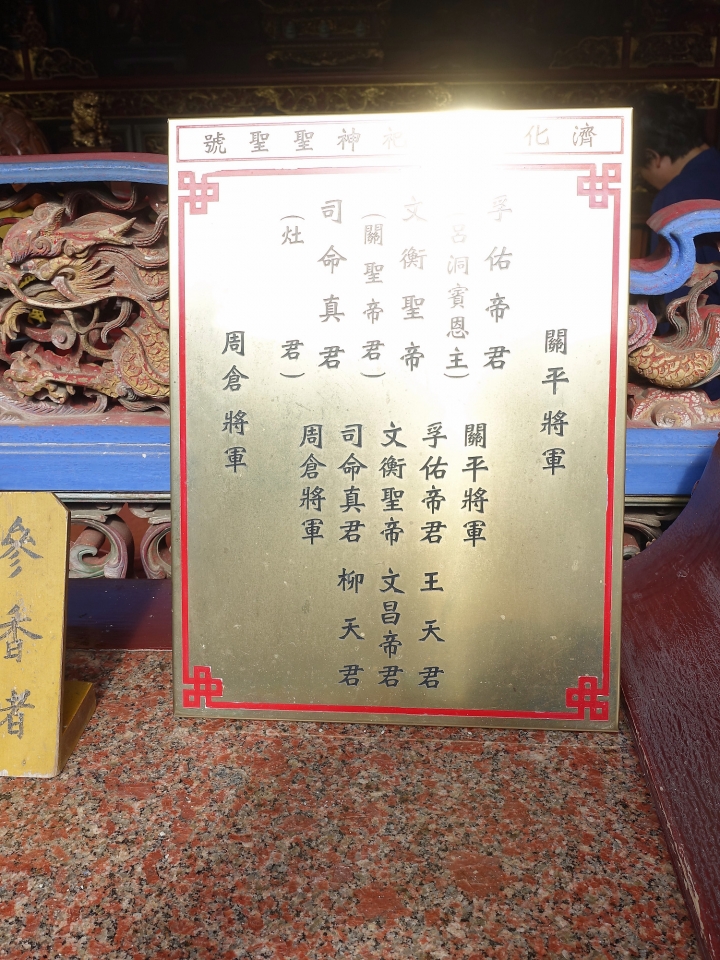 濟化 祀神聖聖號
關平將軍
孚佑帝君
(呂洞賓恩主)
文衡聖帝
(關聖帝君)
司命真君
(灶君)
周倉將軍
關平將軍
孚佑帝君 王天君
文衡聖帝 文昌帝君
司命真君 柳天君
周倉將軍
參香者